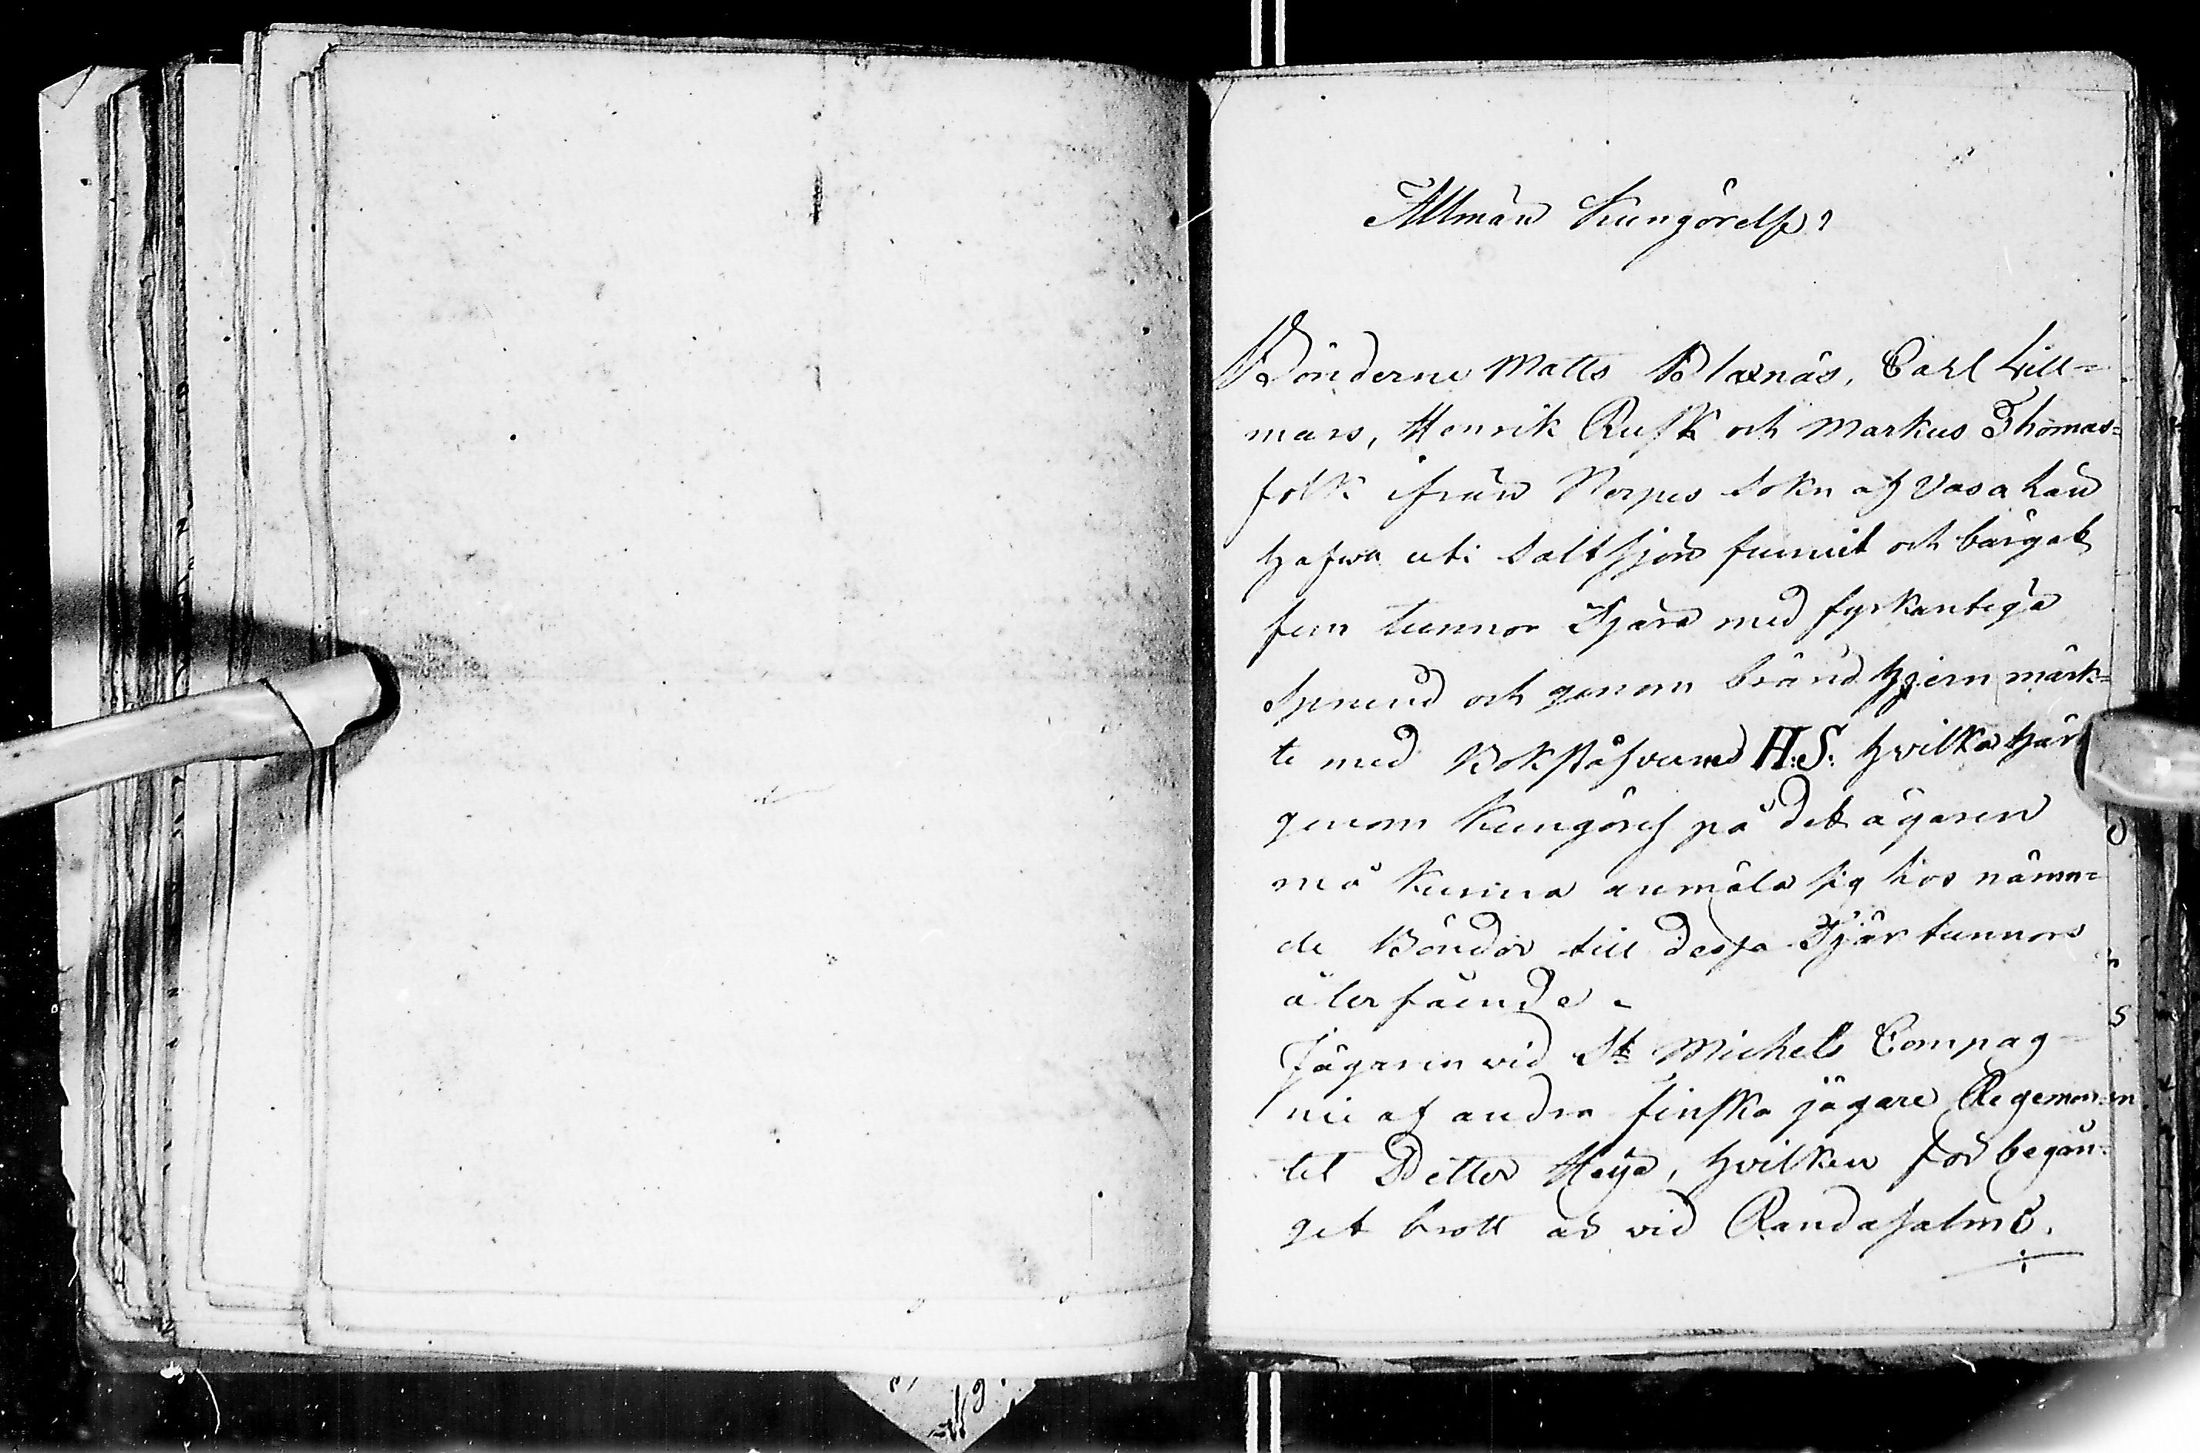 Allmän Kungörelse?
Bönderne Matts Blaxnäs, Carl Lill=
mars, Henrik Rusk och Markus Thomas=
folk ifrån Nerpes Sokn af Vasa Län
hafwa uti Saltsjön funnit och bärgat
fem tunnor Tjära med fyrkantiga
Sprund och genom bränd hjern märk=
te med Bokstäfverne H:S: hvilka här
genom Kungörs på det ägaren
må Kunna anmäla sig hos nämn=
de Bönder till dessa Tjär tunnors
återfående.
Jägaren vid St Michels Compag=
nie af andra finska jägare Regemen=
tet Petter Heye, hvilken för begån=
get brott är vid Randasalmi.